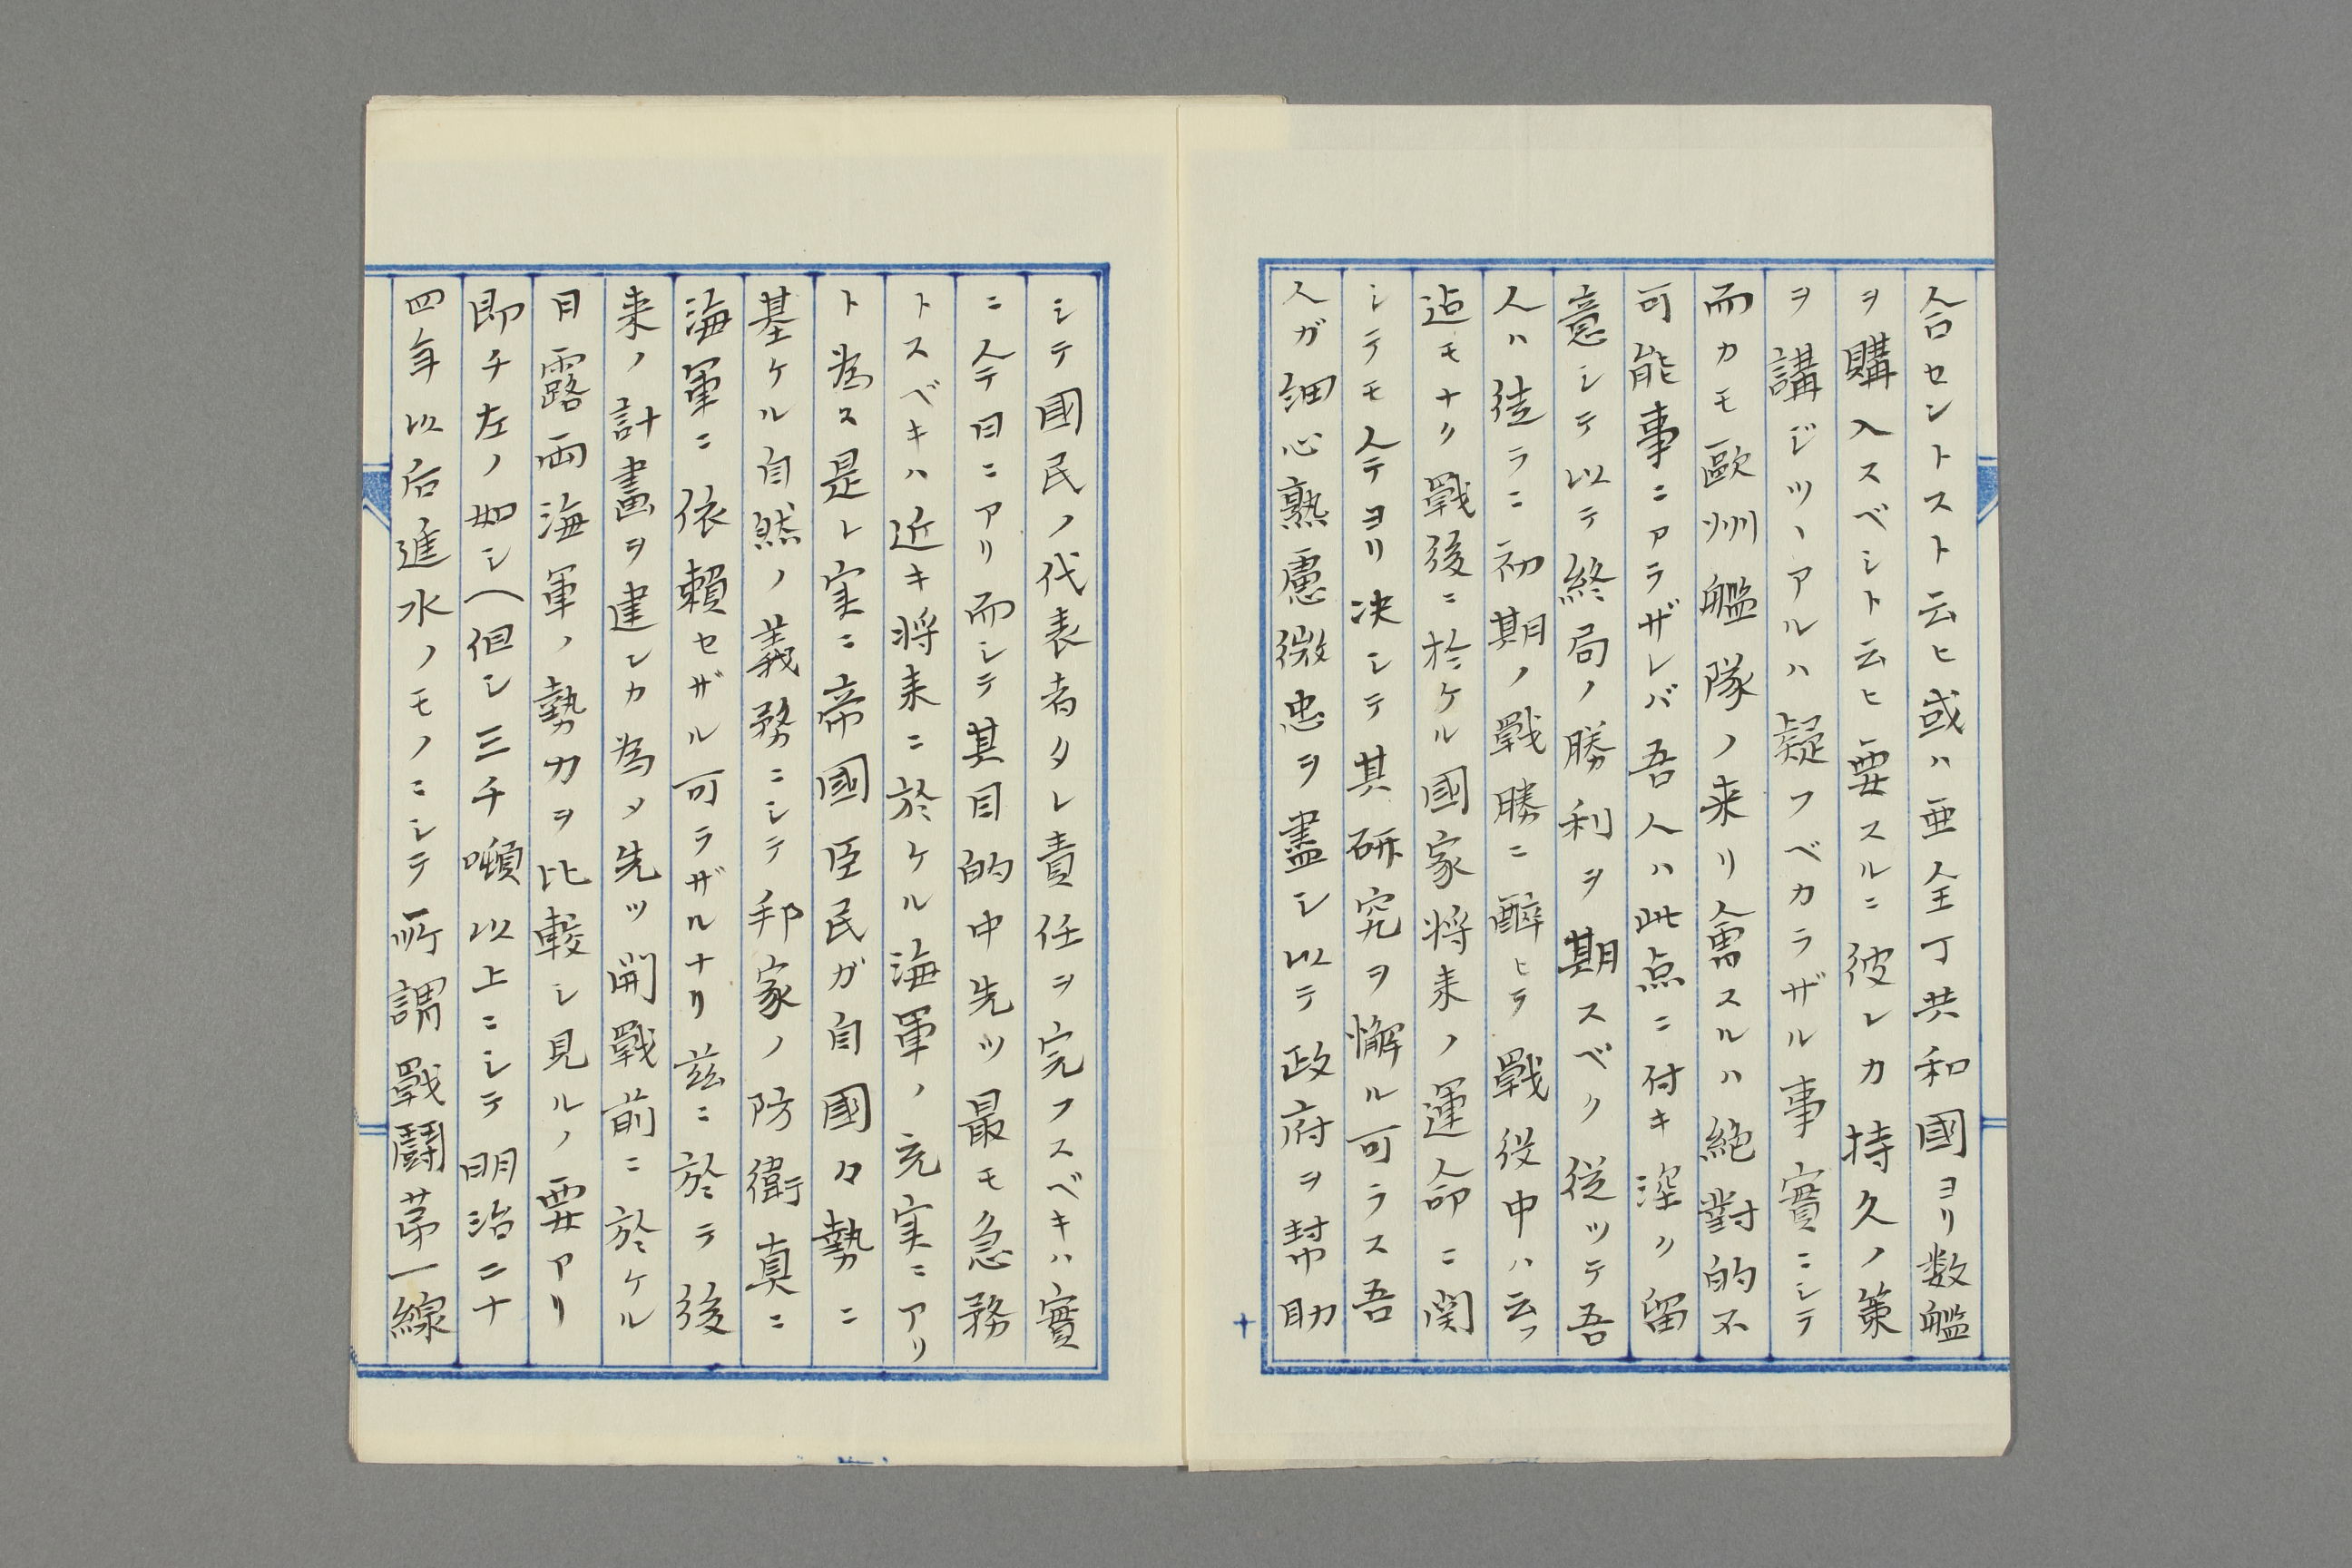 合セントスト云ヒ或ハ亜全丁共和國ヨリ数艦
ヲ購入スベシト云ヒ要スルニ彼レカ持久ノ策
ヲ講ジツヽアルハ疑フベカラザル事實ニシテ
而カモ歐州艦隊ノ来リ會スルハ絶對的不
可能事ニアラザレバ吾人ハ此点ニ付キ深ク留
意シテ以テ終局ノ勝利ヲ期スベク従ツテ吾
人ハ徒ラニ初期ノ戰勝ニ醉ヒテ戰役中ハ云フ
迠モナク戰後ニ於ケル國家将来ノ運命ニ関
シテモ今ヨリ决シテ其研究ヲ懈ル可ラス吾
人ガ細心熟慮微忠ヲ盡シ以テ政府ヲ幇助
シテ國民ノ代表者タレ責任ヲ完フスベキハ實
ニ今日ニアリ而シテ其目的中先ツ最モ急務
トスベキハ近キ将来ニ於ケル海軍ノ充実ニアリ
ト為ス是レ実ニ帝國臣民ガ自國々勢ニ
基ケル自然ノ義務ニシテ邦家ノ防衛真ニ
海軍ニ依頼セザル可ラザルナリ茲ニ於テ後
来ノ計畫ヲ建レカ為メ先ツ開戰前ニ於ケル
日露両海軍ノ勢力ヲ比較シ見ルノ要アリ
即チ左ノ如シ(但シ三千噸以上ニシテ明治二十
四年以后進水ノモノニシテ所謂戰鬪苐一線